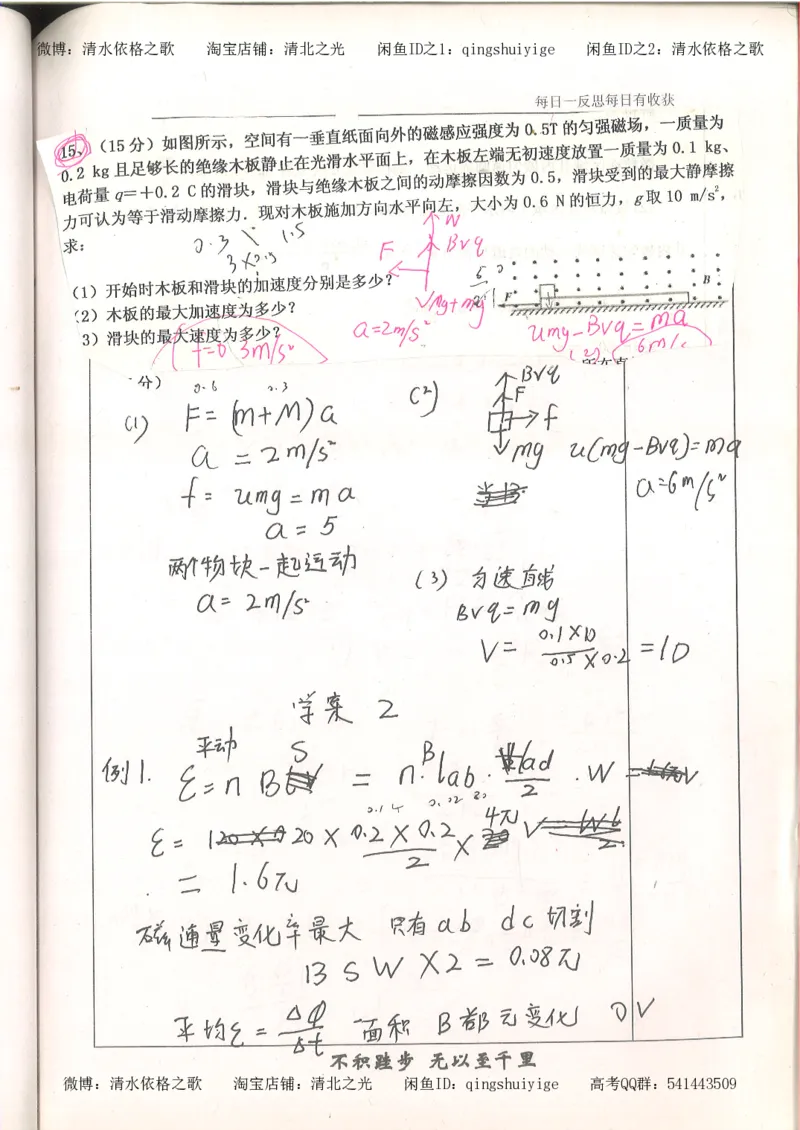 微博：清水依格之歌 淘宝店铺：清北之光 闲鱼ID之1：qingshuiyige 闲鱼ID之2：清水依格之歌
每日一反思每日有收获
15、（15分）如图所示，空间有一垂直纸面向外的磁感应强度为 0.5T 的匀强磁场，一质量为
0.2 kg 且足够长的绝缘木板静止在光滑水平面上，在木板左端无初速度放置一质量为 0.1 kg、
电荷量 q=＋0.2 C 的滑块，滑块与绝缘木板之间的动摩擦因数为 0.5，滑块受到的最大静摩擦
力可认为等于滑动摩擦力．现对木板施加方向水平向左，大小为 0.6 N 的恒力，g 取 10 m/s²，
求：
0.3 1.5
N
Bvq
F
Mg+mg
（1）开始时木板和滑块的加速度分别是多少？
F B
（2）木板的最大加速度为多少？
a=2m/s²
umg-Bvq=ma
3）滑块的最大速度为多少？
f=0 3m/s²
(2) 6m/
分）
0.6 0.3
(1) F=(m+M)a
a=2m/s²
f=umg=ma
a=5
两个物块一起运动
a=2m/s²
(2)
Bvq
F
f
mg
u(mg-Bvq)=ma
a=6m/s²
(3) 匀速直线
Bvq=mg
V= 0.1×10 / 0.5×0.2 =10
学案 2
平动 S
例1. ε=n B = n·B lab· lad/2 ·W
ε= 20 × 0.2×0.2/2 × 4π V
= 1.6π
磁通量变化率最大 只有ab dc切割
BSW×2=0.08π
平均ε= ΔΦ/Δt 面积 B都无变化 0V
不积跬步 无以至千里
微博：清水依格之歌 淘宝店铺：清北之光 闲鱼ID：qingshuiyige 高考QQ群：541443509